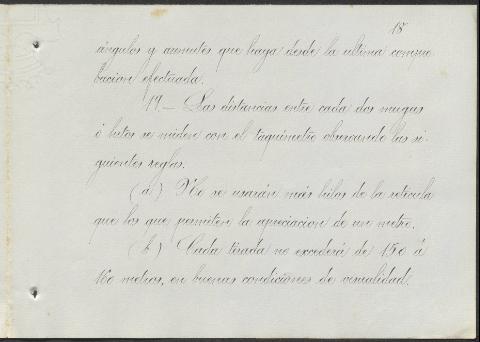 18
ángulos y azimutes que haya desde la ultima compro
bacion efectuada.
19_ Las distancias entre cada dos mugas
ó hitos se miden con el taquímetro observando las si-
guientes reglas.
(a) No se usarán más hilos de la retícula
que los que permiten la apreciacion de un metro.
(b) Cada tirada no excederá de 150 á
160 metros, en buenas condiciones de visualidad.